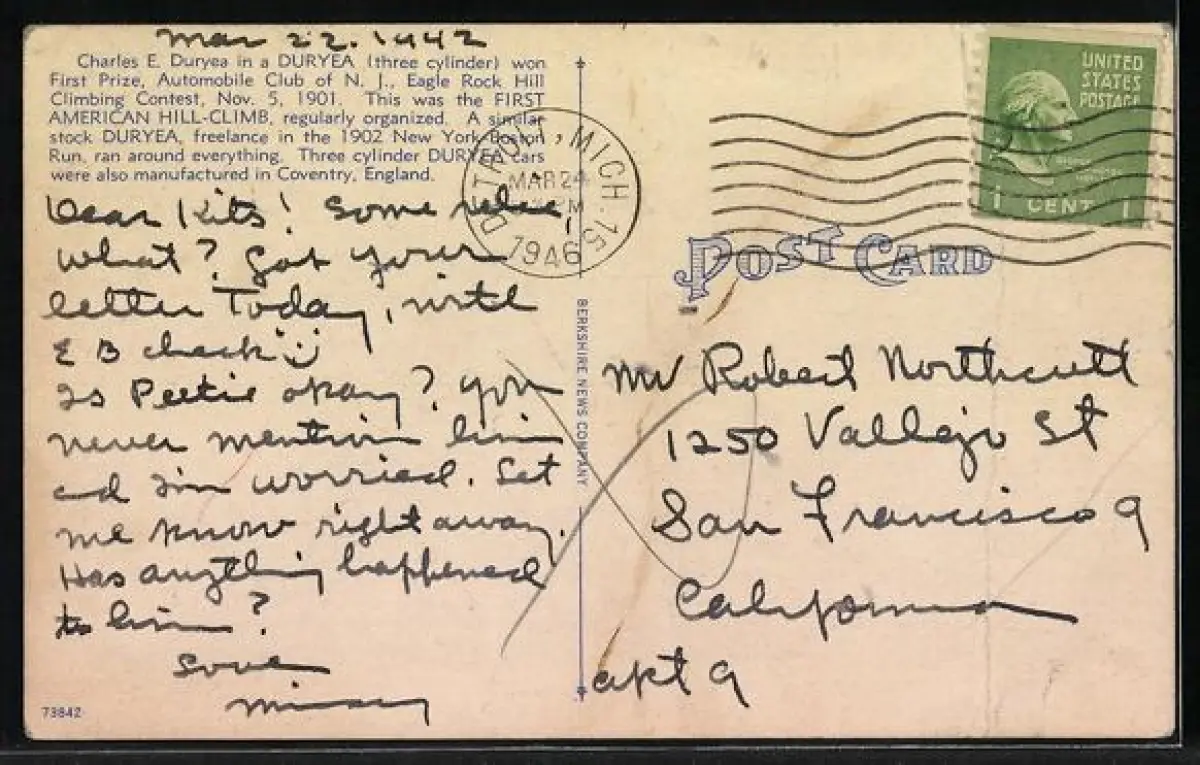 Mar 22. 1942
Charles E. Duryea in a DURYEA (three cylinder) won
First Prize, Automobile Club of N. J., Eagle Rock Hill
Climbing Contest, Nov. 5, 1901. This was the FIRST
AMERICAN HILL-CLIMB, regularly organized. A similar
stock DURYEA, freelance in the 1902 New York-Boston
Run, ran around everything. Three cylinder DURYEA cars
were also manufactured in Coventry, England.
Dear Kits! Some
what? Got your
letter Today, with
E B check
Is Peetie okay? You
never mention him
and I'm worried. Let
me know right away.
Has anything happened
to him?
Love
73842
BERKSHIRE NEWS COMPANY
MICH. 15
MAR 24
1946
UNITED
STATES
POSTAGE
1 CENT 1
POST CARD
Mr Robert Northcutt
1250 Vallejo St
San Francisco 9
California
apt 9